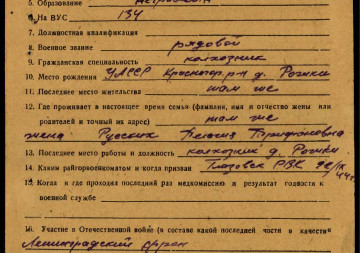 5. Образование
6. На ВУС 134
7. Должностная квалификация
8. Военное звание рядовой
9. Гражданская специальность колхозник
10. Место рождения УАССР Красногор. р-н д.
11. Последнее место жительства там же
12. Где проживает в настоящее время семья (фамилия, имя и отчество жены или
родителей и точный их адрес) там же
жена Русских Трифоновна
13. Последнее место работы и должность колхозник д.
14. Каким райгорвоенкоматом и когда призван Глазовск РВК
44 г.
15. Когда и где проходил последний раз медкомиссию и результат годности к
военной службе
16. Участие в Отечественной войне (в составе какой последней части и в качестве
Ленинградский фрон